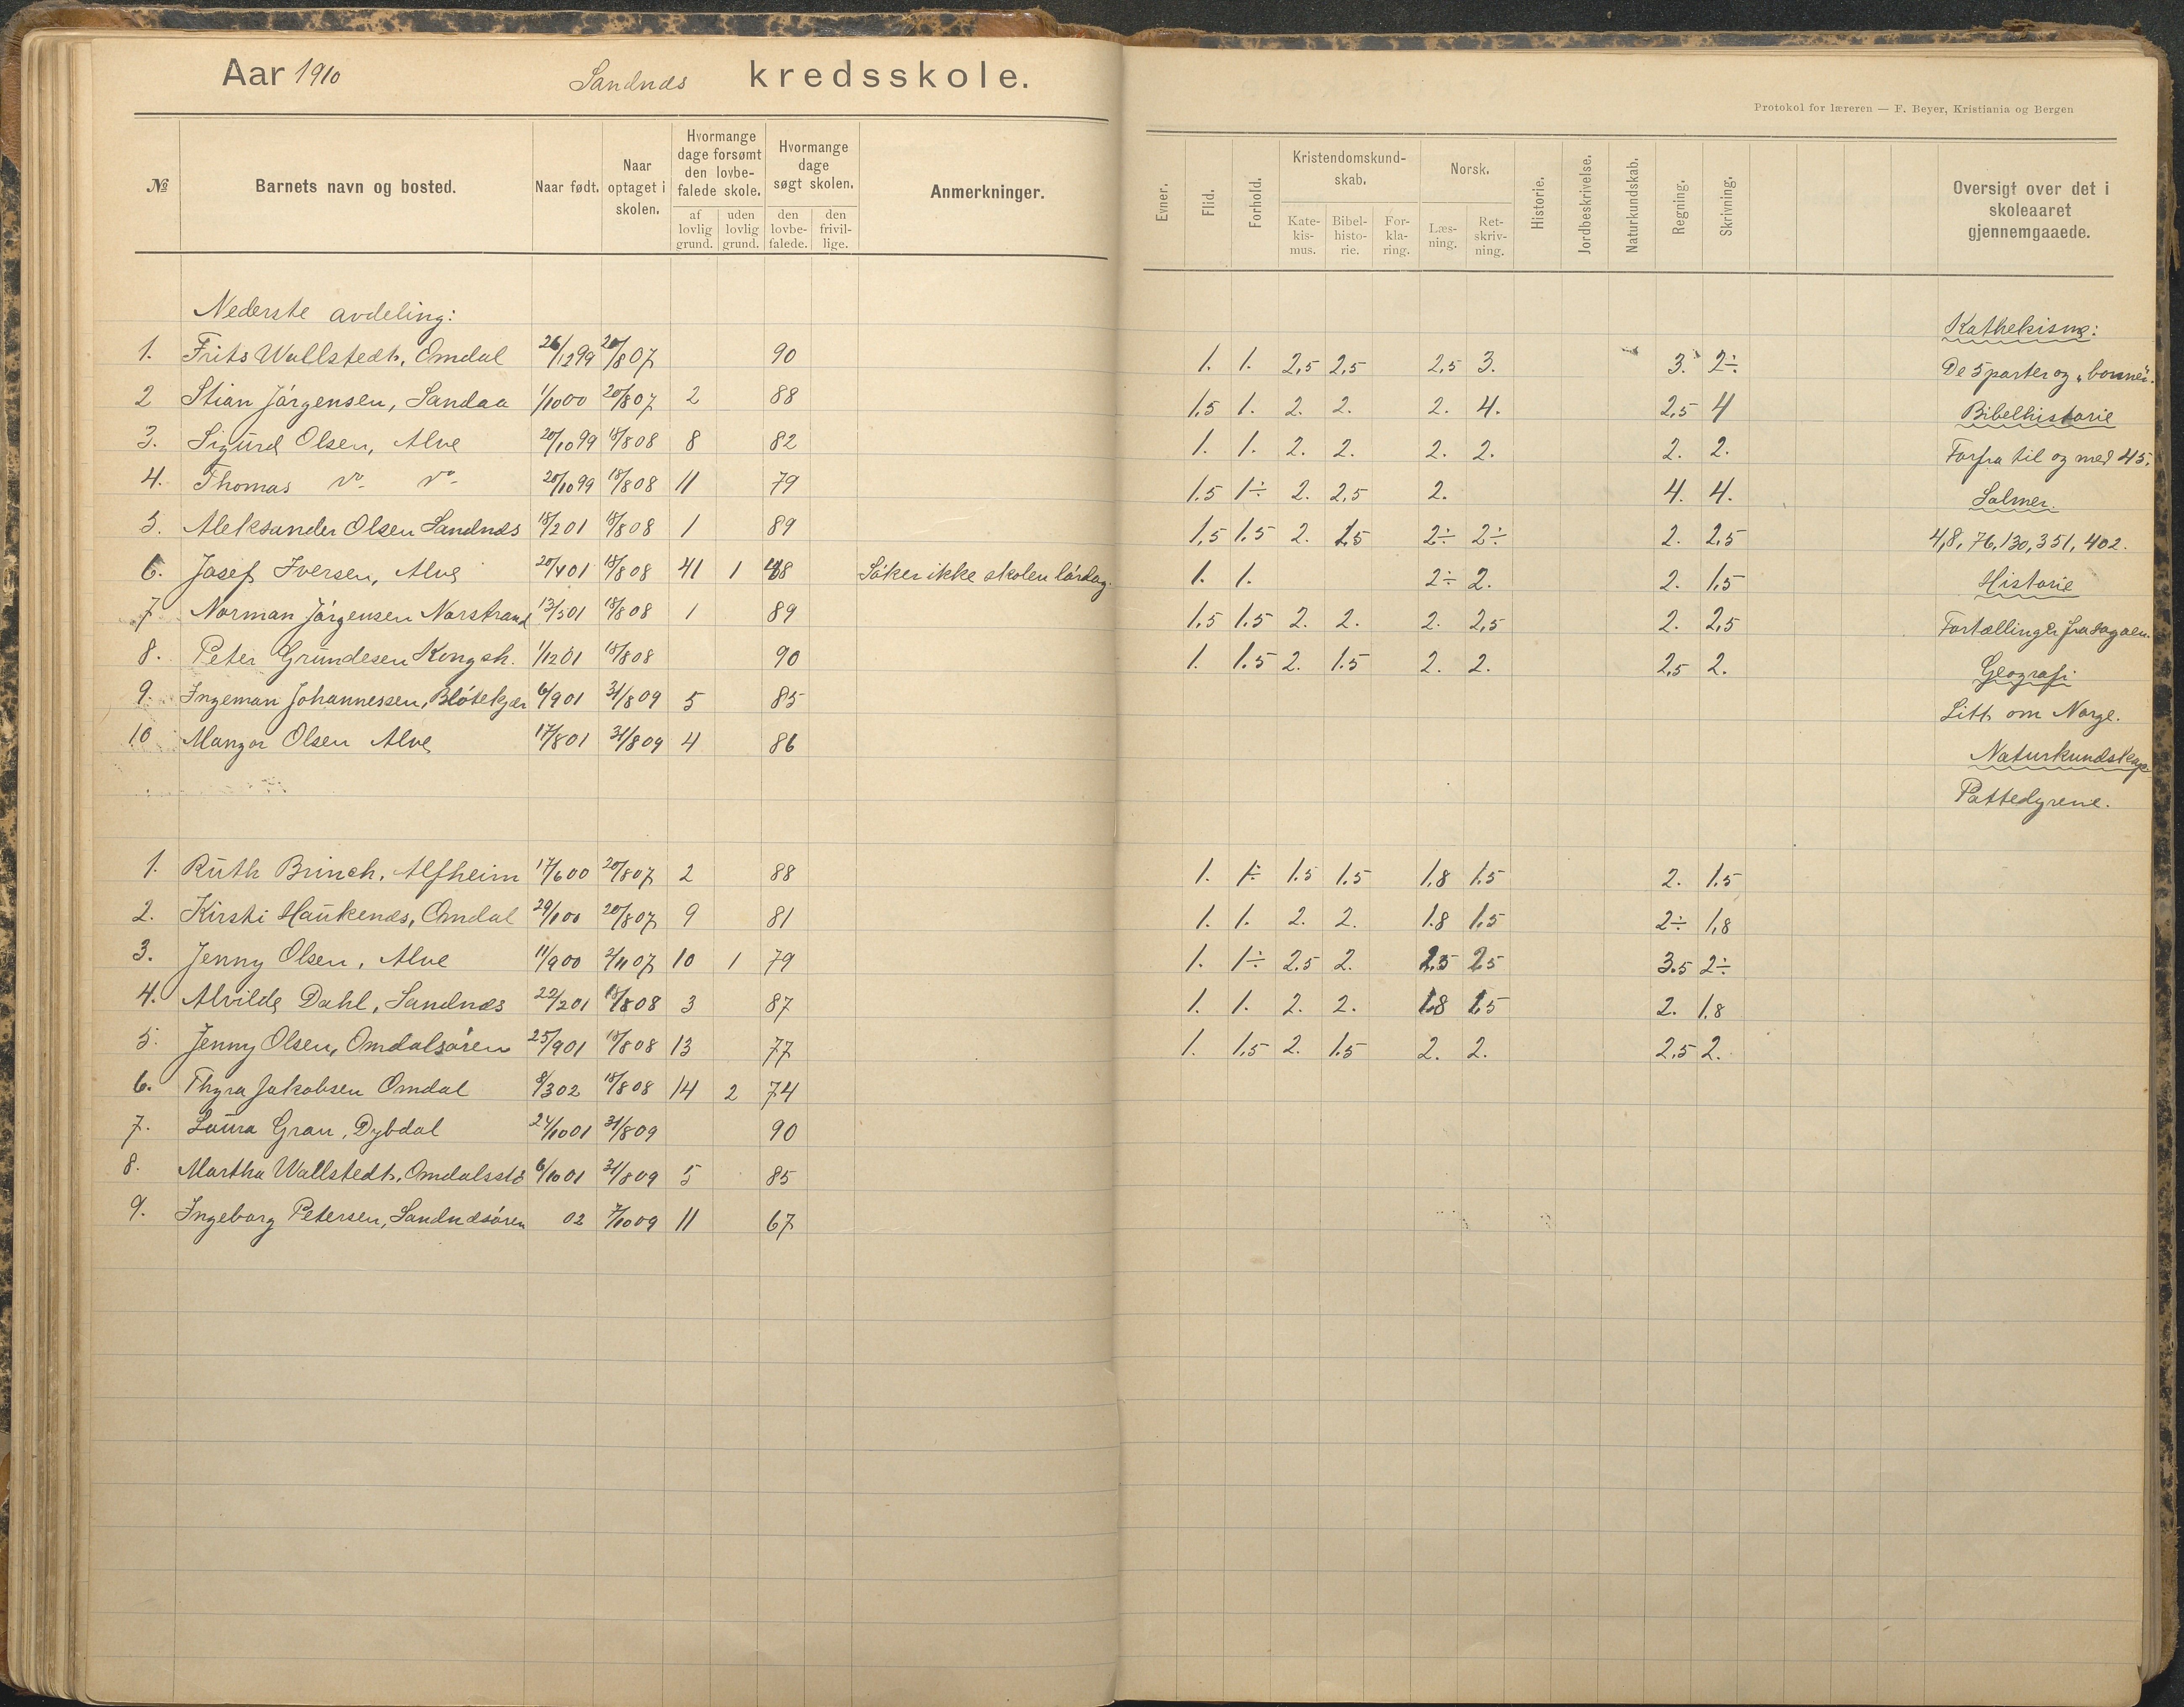 Aar 1910 Sandnæs kredsskole.
Protokol for læreren — F. Beyer, Kristiania og Bergen
№ Barnets navn og bosted. Naar født. Naar optaget i skolen. Hvormange dage forsømt den lovbefalede skole. af lovlig grund. uden lovlig grund. Hvormange dage søgt skolen. den lovbefalede. den frivillige. Anmerkninger. Evner. Flid. Forhold. Kristendomskundskab. Katekismus. Bibelhistorie. Forklaring. Norsk. Læsning. Retskrivning. Historie. Jordbeskrivelse. Naturkundskab. Regning. Skrivning. Oversigt over det i skoleaaret gjennemgaaede.
Nederste avdeling: Kathekisme:
1. Frits Wallstedt, Omdal 26/12 99 20/8 07 90 1. 1. 2,5 2,5 2,5 3. 3. 2÷ De 5 parter og „bønnen".
2 Stian Jørgensen, Sandaa 1/10 00 20/8 07 2 88 1,5 1. 2. 2. 2. 4. 2,5 4 Bibelhistorie
3. Sigurd Olsen, Alve 20/10 99 18/8 08 8 82 1. 1. 2. 2. 2. 2. 2. 2. Forfra til og med 45.
4. Thomas do. do. 20/10 99 18/8 08 11 79 1.5 1÷ 2. 2,5 2. 4. 4. Salmer.
5. Aleksander Olsen Sandnæs 18/2 01 18/8 08 1 89 1,5 1.5 2. 1,5 2÷ 2÷ 2. 2,5 4,8, 76, 130, 351, 402.
6. Josef Iversen, Alve 20/4 01 18/8 08 41 1 48 Søker ikke skolen lørdag. 1. 1. 2÷ 2. 2. 1.5 Historie
7 Norman Jørgensen Norstrand 13/5 01 18/8 08 1 89 1,5 1.5 2. 2. 2. 2,5 2. 2,5 Fortællinger fra sagaen.
8. Peter Grundesen Kongsh. 1/12 01 18/8 08 90 1. 1.5 2. 1.5 2. 2. 2,5 2. Geografi
9. Ingeman Johannessen, Bløtekjær 6/9 01 31/8 09 5 85 Litt om Norge.
10 Mangor Olsen Alve 17/8 01 31/8 09 4 86 Naturkundskap
Pattedyrene.
1. Ruth Brinch, Alfheim 17/6 00 20/8 07 2 88 1. 1÷ 1.5 1.5 1,8 1.5 2. 1.5
2. Kirsti Haukenæs, Omdal 29/1 00 20/8 07 9 81 1. 1. 2. 2. 1.8 1.5 2÷ 1,8
3. Jenny Olsen, Alve 11/9 00 2/11 07 10 1 79 1. 1÷ 2.5 2. 2.5 2.5 3.5 2÷
4. Alvilde Dahl, Sandnæs 22/2 01 18/8 08 3 87 1. 1. 2. 2. 1.8 1.5 2. 1.8
5. Jenny Olsen, Omdalsøren 25/9 01 18/8 08 13 77 1. 1,5 2. 1.5 2. 2. 2,5 2.
6. Thyra Jakobsen Omdal 8/3 02 18/8 08 14 2 74
7. Laura Gran, Dybdal 24/10 01 31/8 09 90
8. Martha Wallstedt, Omdalsstø 6/10 01 31/8 09 5 85
9. Ingeborg Petersen, Sandnæsøren 02 7/10 09 11 67